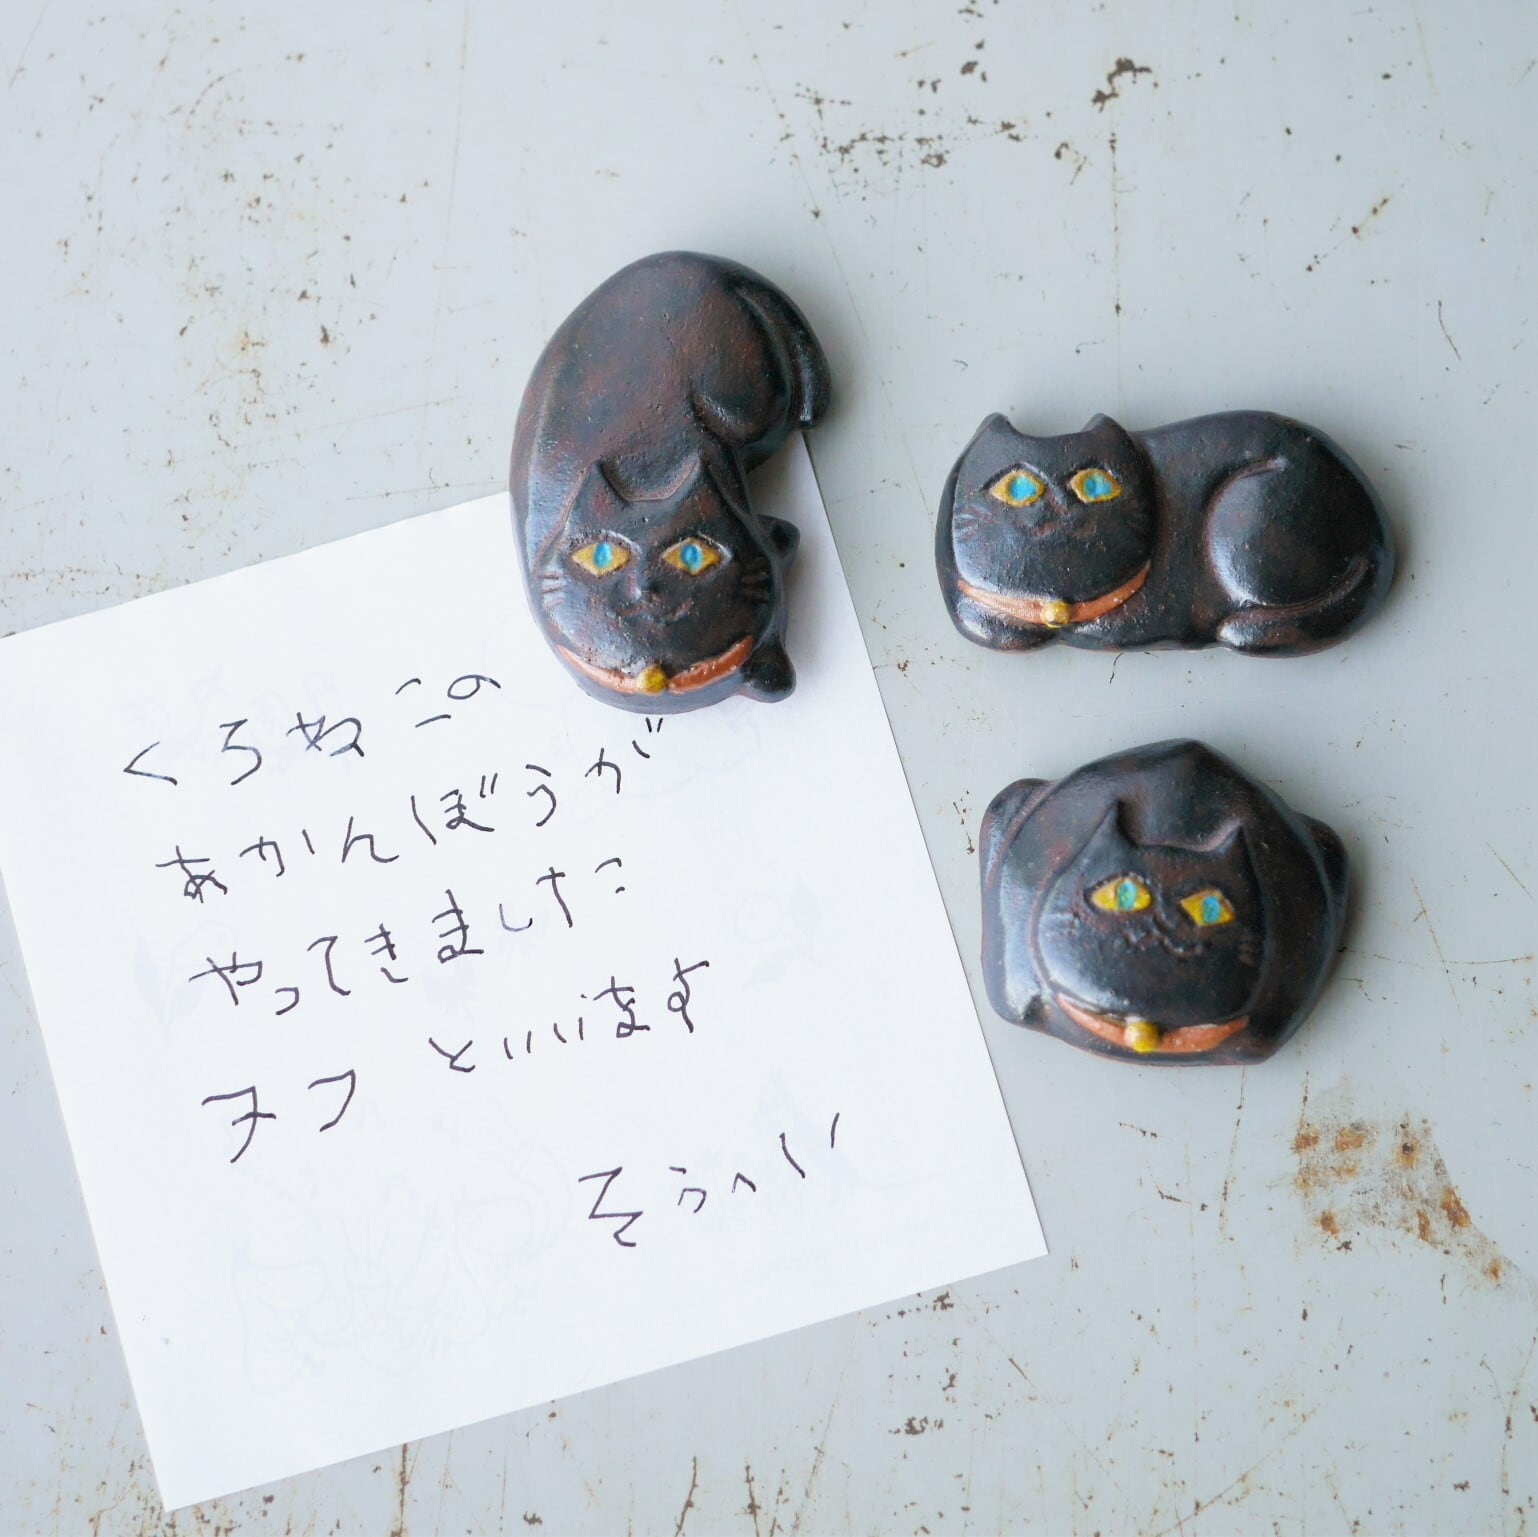 くろねこの
あかんぼうが
やってきました
ヌフ といいます
そうへい